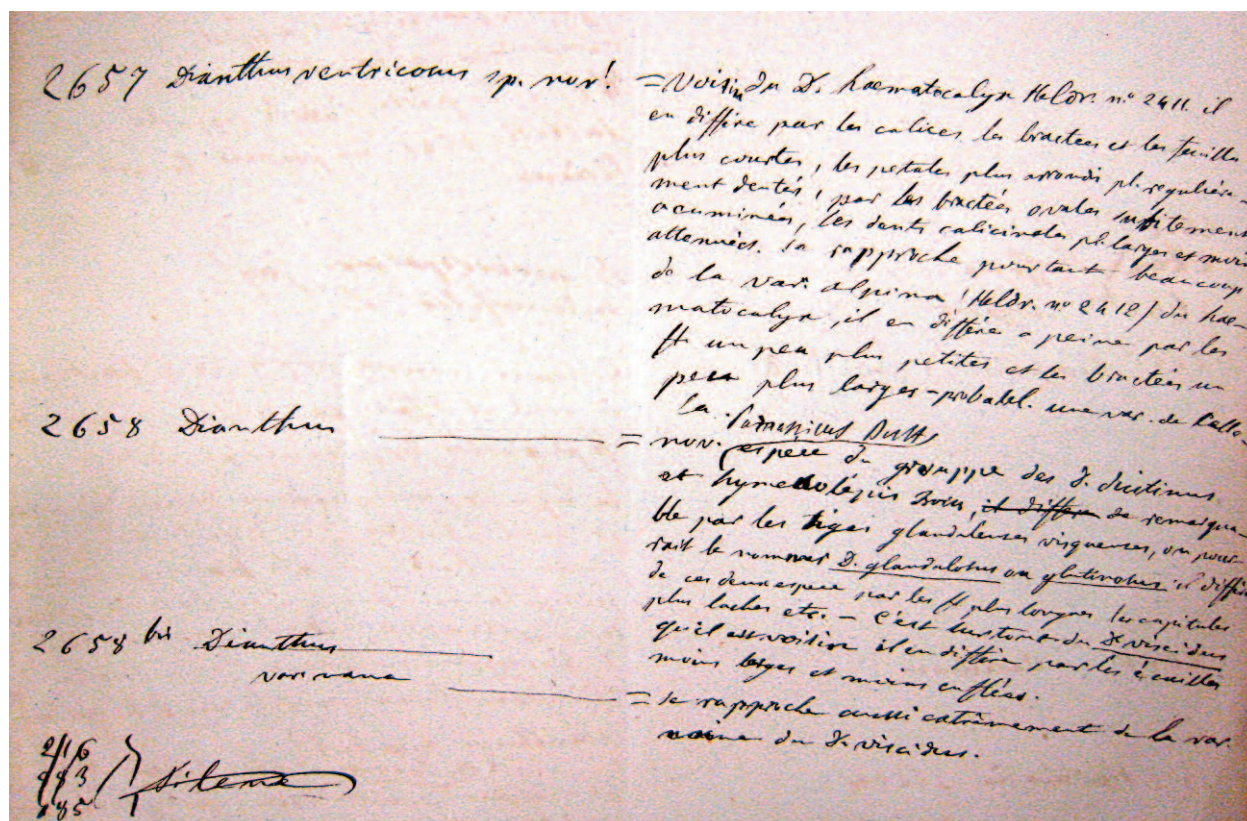 2657 Dianthus ventricosus sp. nov! = Voisin du D. haematocalyx Heldr. nº 2411. il
en diffère par les calices les bractees et les feuilles
plus courtes, les petales plus arrondis pl. regulière-
ment dentés, par les bractées ovales subitement
acuminées, les dents calicinales pl. larges et moins
attenuées. Se rapproche pourtant beaucoup
de la var. alpina (Heldr. nº 2412) du hae-
matocalyx, il en diffère a peine par les
fl. un peu plus petites et les bractées un
peu plus larges - probabl. une var. de
2658 Dianthus = nov. espece du grouppe des D.
et hymenolepis Boiss, il differe se remarqua-
ble par les tiges glanduleuses visqueuses, on pour-
rait le nommer D. glandulosus ou glutinosus il diffère
de ces deux espece par les fl plus longues les capitules
plus laches etc. - C'est surtout du D. viscidus
qu'il est voisin il en diffère par les écailles
moins larges et moins enflées.
2658 bis Dianthus
var. nana = se rapproche aussi extrêmement de la var.
nana du D. viscidus.
216
185
Silene